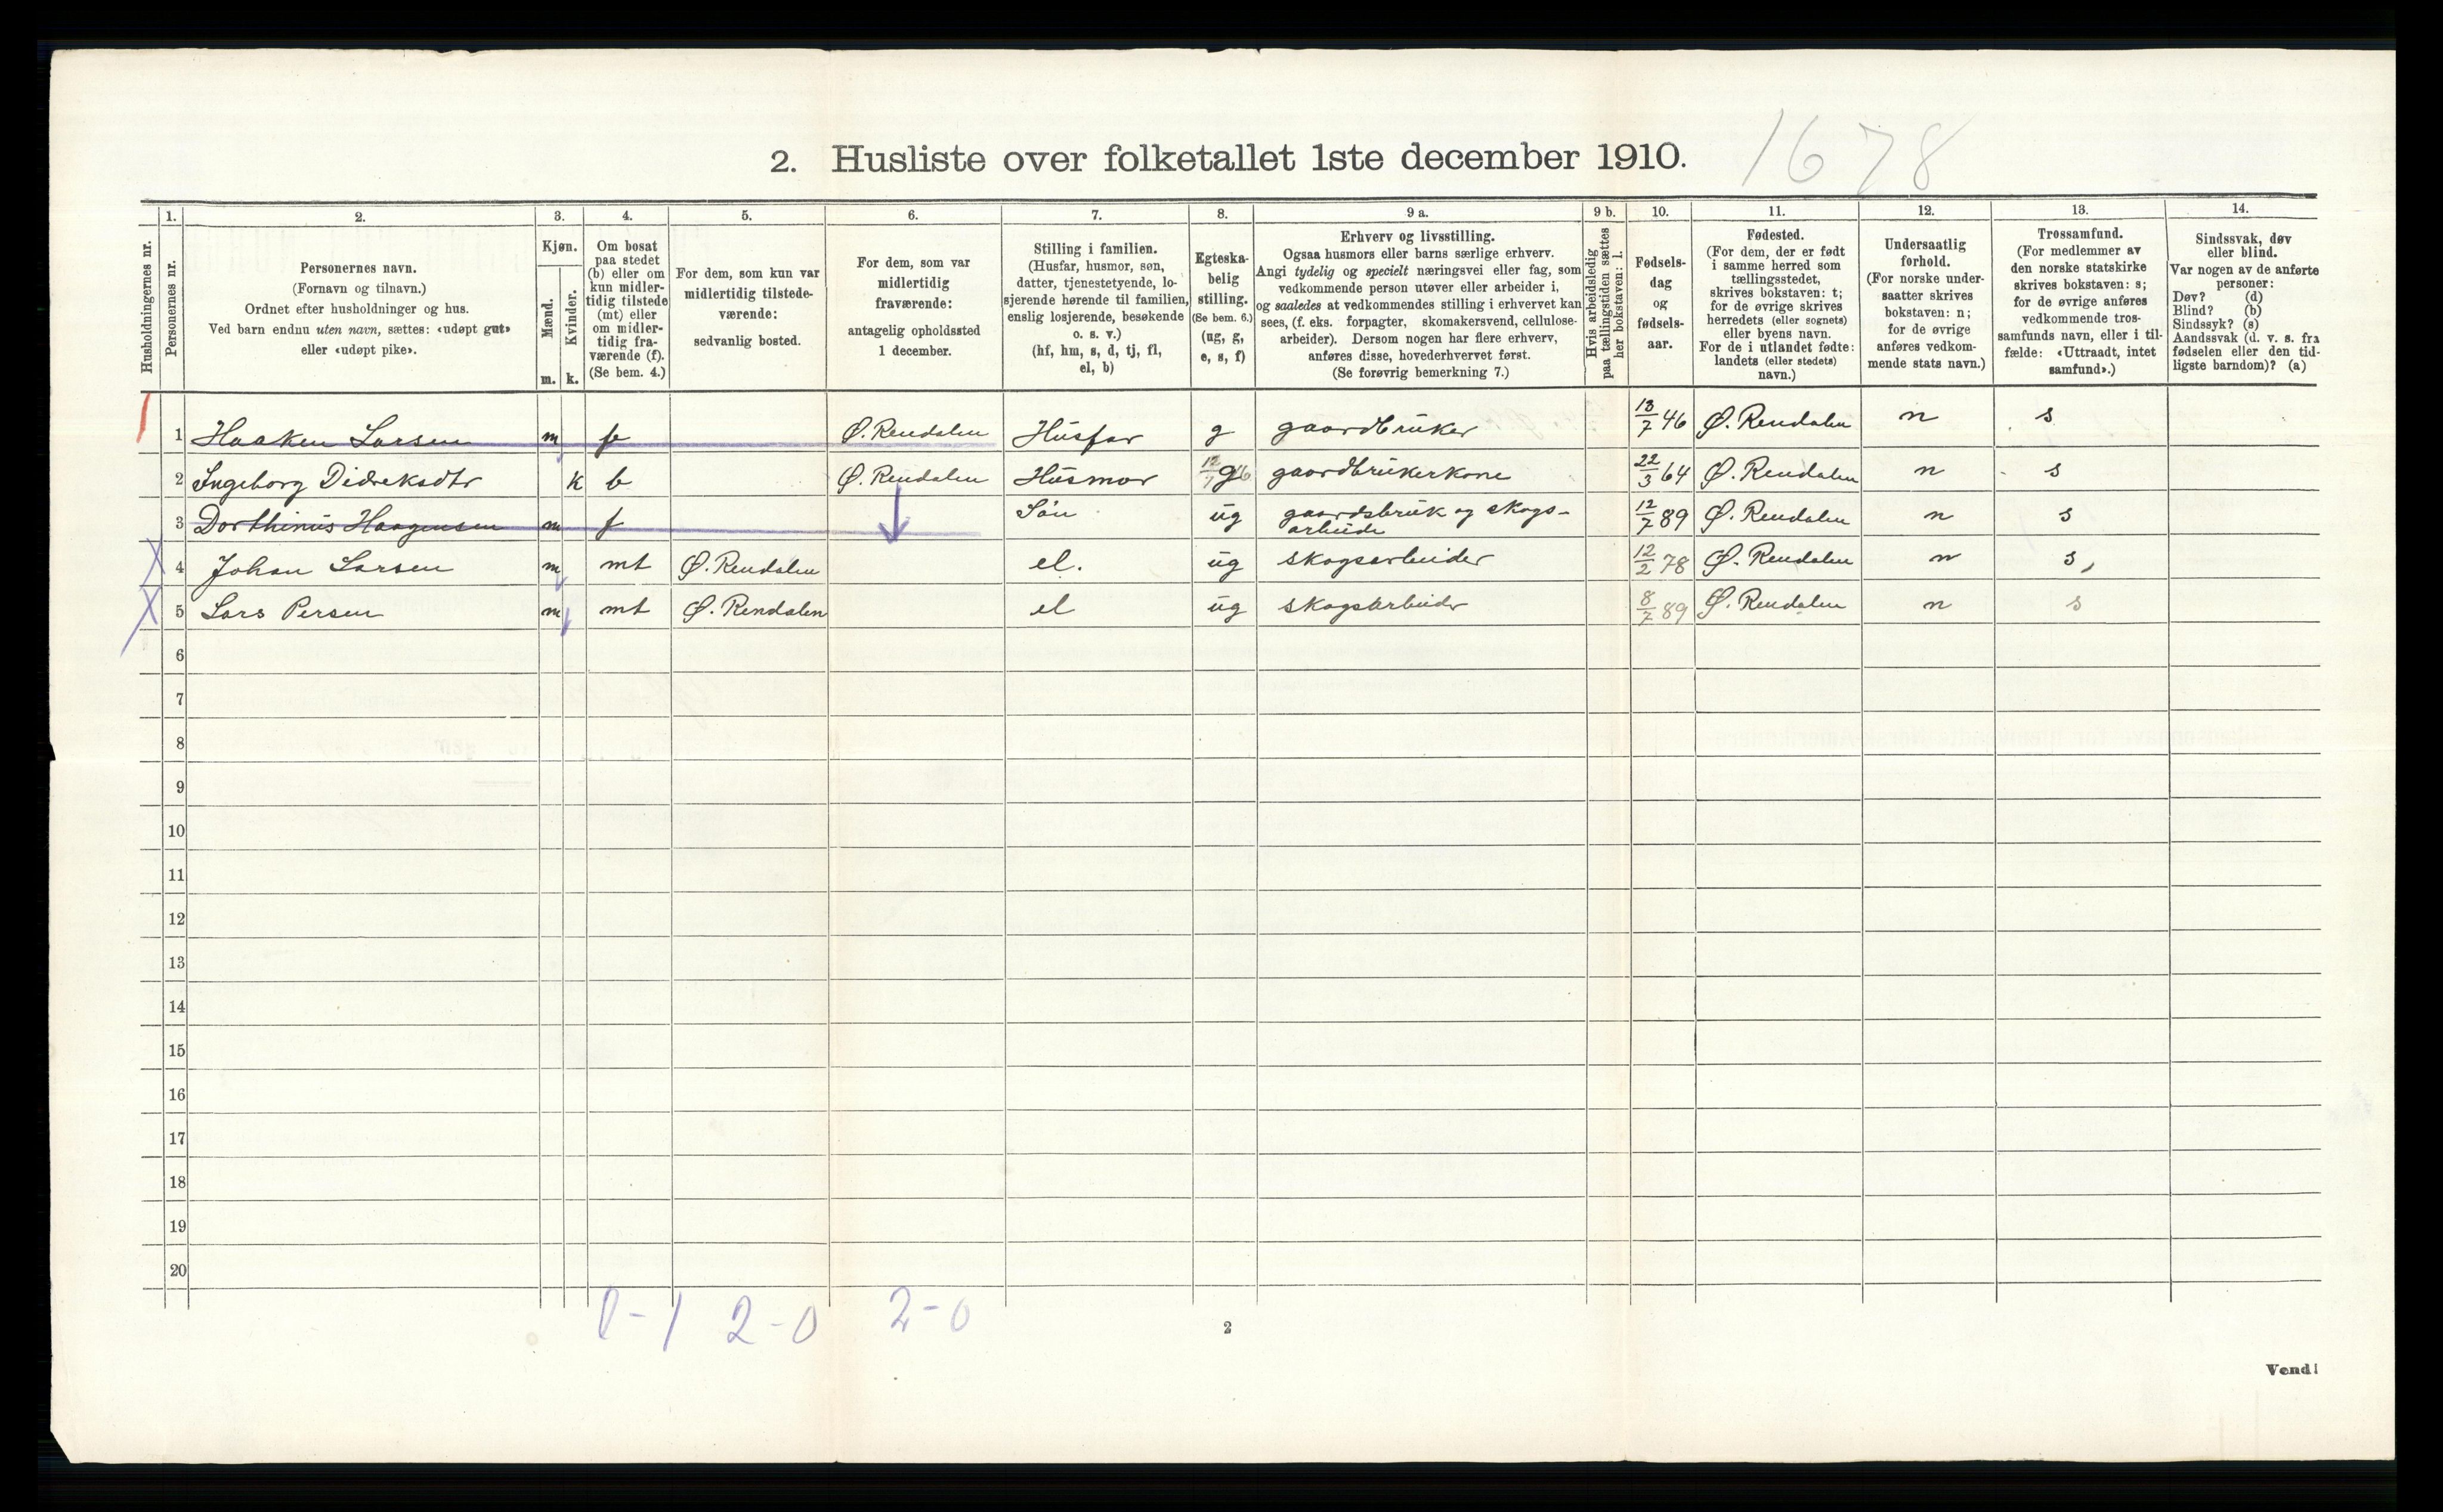 2. Husliste over folketallet 1ste december 1910.
1678
Husholdningernes nr.
1.
Personernes nr.
2.
Personernes navn.
(Fornavn og tilnavn.)
Ordnet efter husholdninger og hus.
Ved barn endnu uten navn, sættes: «udøpt gut»
eller «udøpt pike».
3.
Kjøn.
Mænd.
m.
Kvinder.
k.
4.
Om bosat
paa stedet
(b) eller om
kun midler-
tidig tilstede
(mt) eller
om midler-
tidig fra-
værende (f).
(Se bem. 4.)
5.
For dem, som kun var
midlertidig tilstede-
værende:
sedvanlig bosted.
6.
For dem, som var
midlertidig
fraværende:
antagelig opholdssted
1 december.
7.
Stilling i familien.
(Husfar, husmor, søn,
datter, tjenestetyende, lo-
sjerende hørende til familien,
enslig losjerende, besøkende
o. s. v.)
(hf, hm, s, d, tj, fl,
el, b)
8.
Egteska-
belig
stilling.
(Se bem. 6.)
(ug, g,
e, s, f)
9 a.
Erhverv og livsstilling.
Ogsaa husmors eller barns særlige erhverv.
Angi tydelig og specielt næringsvei eller fag, som
vedkommende person utøver eller arbeider i,
og saaledes at vedkommendes stilling i erhvervet kan
sees, (f. eks. forpagter, skomakersvend, cellulose-
arbeider). Dersom nogen har flere erhverv,
anføres disse, hovederhvervet først.
(Se forøvrig bemerkning 7.)
9 b.
Hvis arbeidsledig
paa tællingstiden sættes
her bokstaven: l.
10.
Fødsels-
dag
og
fødsels-
aar.
11.
Fødested.
(For dem, der er født
i samme herred som
tællingsstedet,
skrives bokstaven: t;
for de øvrige skrives
herredets (eller sognets)
eller byens navn.
For de i utlandet fødte:
landets (eller stedets)
navn.)
12.
Undersaatlig
forhold.
(For norske under-
saatter skrives
bokstaven: n;
for de øvrige
anføres vedkom-
mende stats navn.)
13.
Trossamfund.
(For medlemmer av
den norske statskirke
skrives bokstaven: s;
for de øvrige anføres
vedkommende tros-
samfunds navn, eller i til-
fælde: «Uttraadt, intet
samfund».)
14.
Sindssvak, døv
eller blind.
Var nogen av de anførte
personer:
Døv? (d)
Blind? (b)
Sindssyk? (s)
Aandssvak (d. v. s. fra
fødselen eller den tid-
ligste barndom)? (a)
1 Haaken Larsen m f Ø. Rendalen Husfar g gaardbruker 13/7 46 Ø. Rendalen n s
2 Ingeborg Didreksdtr k b Ø. Rendalen Husmor g gaardbrukerkone 22/3 64 Ø. Rendalen n s
3 Dorthinus Haagensen m f Sön ug gaardsbruk og skogs-
arbeide 12/7 89 Ø. Rendalen n s
4 Johan Larsen m mt Ø. Rendalen el. ug skogsarbeider 12/2 78 Ø. Rendalen n s,
5 Lars Persen m mt Ø. Rendalen el ug skogsarbeidr 8/7 89 Ø. Rendalen n s
6
7
8
9
10
11
12
13
14
15
16
17
18
19
20
0-1 2-0 2-0
2
Vend!